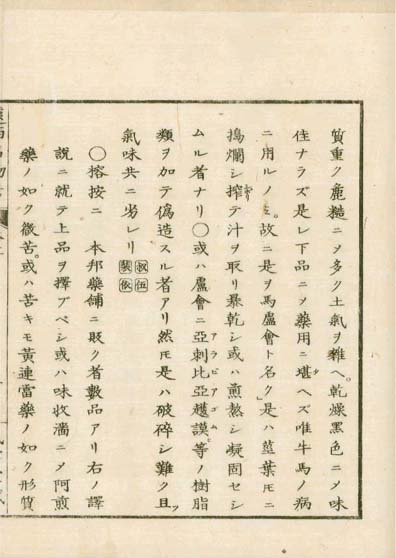 質重ク麁糙ニメ多ク土氣ヲ雜ヘ。乾燥黑色ニメ味
佳ナラズ是レ下品ニメ藥用ニ堪ヘズ唯牛馬ノ病
ニ用ルノミ。故ニ是ヲ馬盧會ト名ク是ハ莖葉𪜈ニ
搗爛シ搾テ汁ヲ取リ暴乾シ或ハ煎熬シ凝固セシ
ムル者ナリ〇或ハ盧會ニ亞刺比亞䕶謨等ノ樹脂
アラビアゴム
類ヲ加テ僞造スル者アリ然𪜈是ハ破碎シ難ク且ツ
氣味共ニ劣レリ 叔伍 製依
〇榕按ニ 本邦藥鋪ニ販ク者數品アリ右ノ譯
說ニ就テ上品ヲ擇ブベシ或ハ味收濇ニメ阿煎
藥ノ如ク微苦。或ハ苦キモ黃連雷藥ノ如ク形質